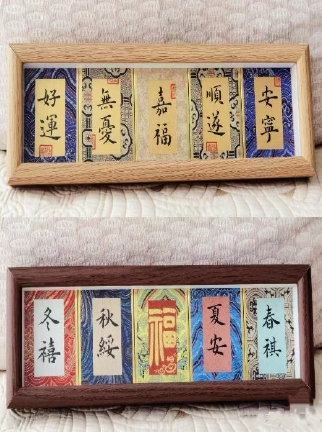 安寧
順遂
嘉福
無憂
好運
春祺
夏安
福
秋綏
冬禧